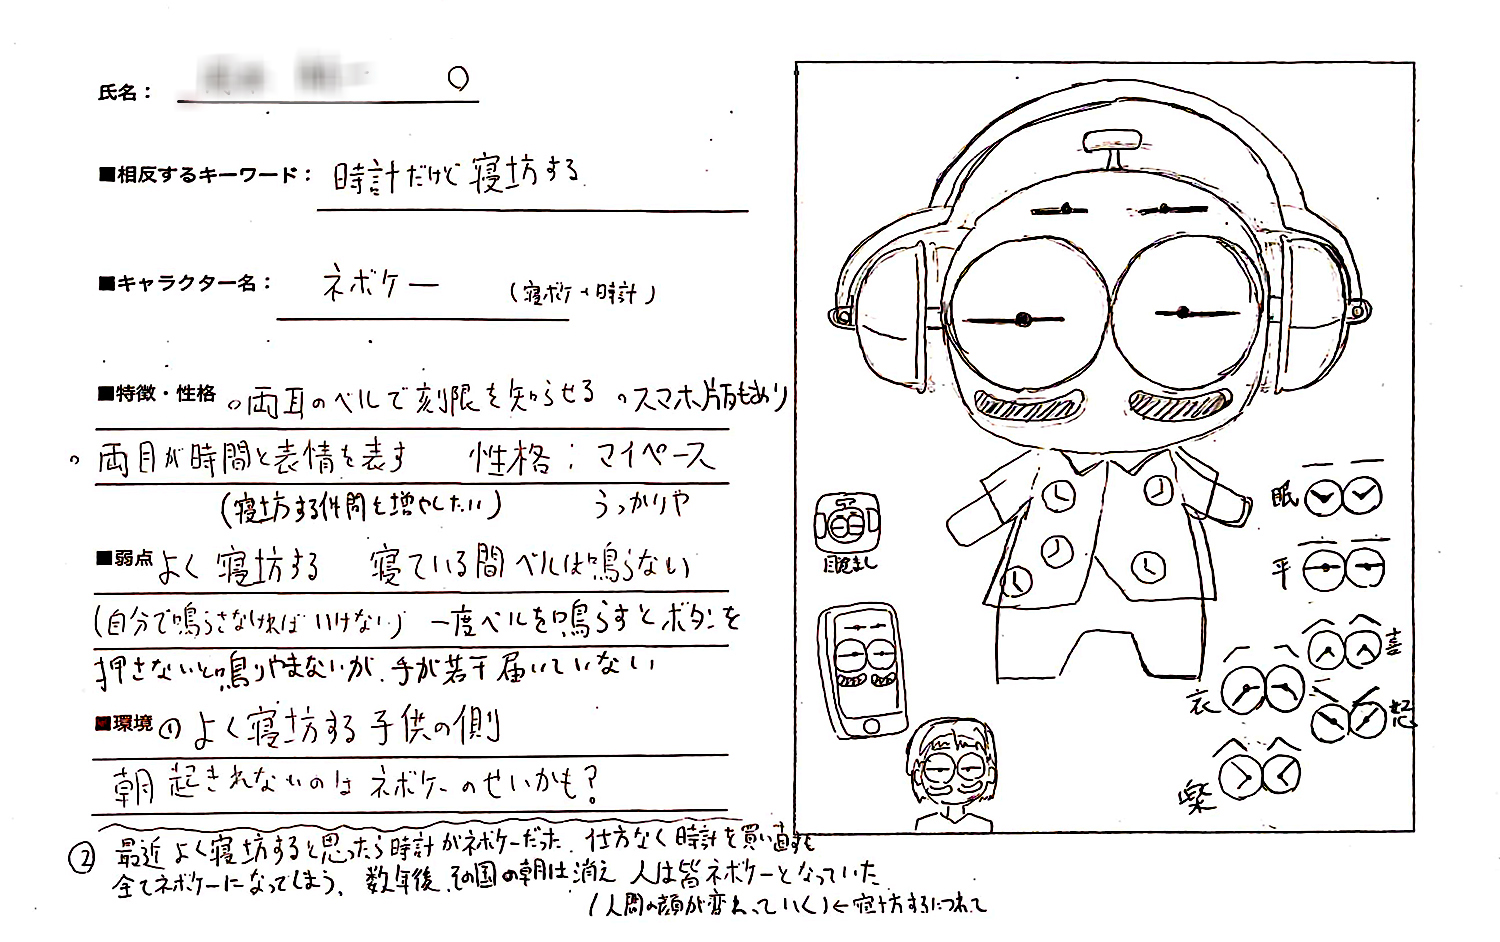 氏名：
■相反するキーワード： 時計だけど寝坊する
■キャラクター名： ネボケー （寝ボケ＋時計）
■特徴・性格 。両耳のベルで刻限を知らせる 。スマホ版もあり
。両目が時間と表情を表す 性格：マイペース
（寝坊する仲間を増やしたい） うっかりや
■弱点 よく寝坊する 寝ている間ベルは鳴らない
（自分で鳴らさなければいけない） 一度ベルを鳴らすとボタンを
押さないと鳴りやまないが、手が若干届いていない
■環境 ① よく寝坊する子供の側
朝起きれないのはネボケーのせいかも？
② 最近よく寝坊すると思ったら時計がネボケーだった、仕方なく時計を買い直すも
全てネボケーになってしまう、数年後、その国の朝は消え 人は皆ネボケーとなっていた
（人間の顔が変わっていく）← 寝坊するにつれて
眠
平
喜
哀
怒
楽
目覚まし